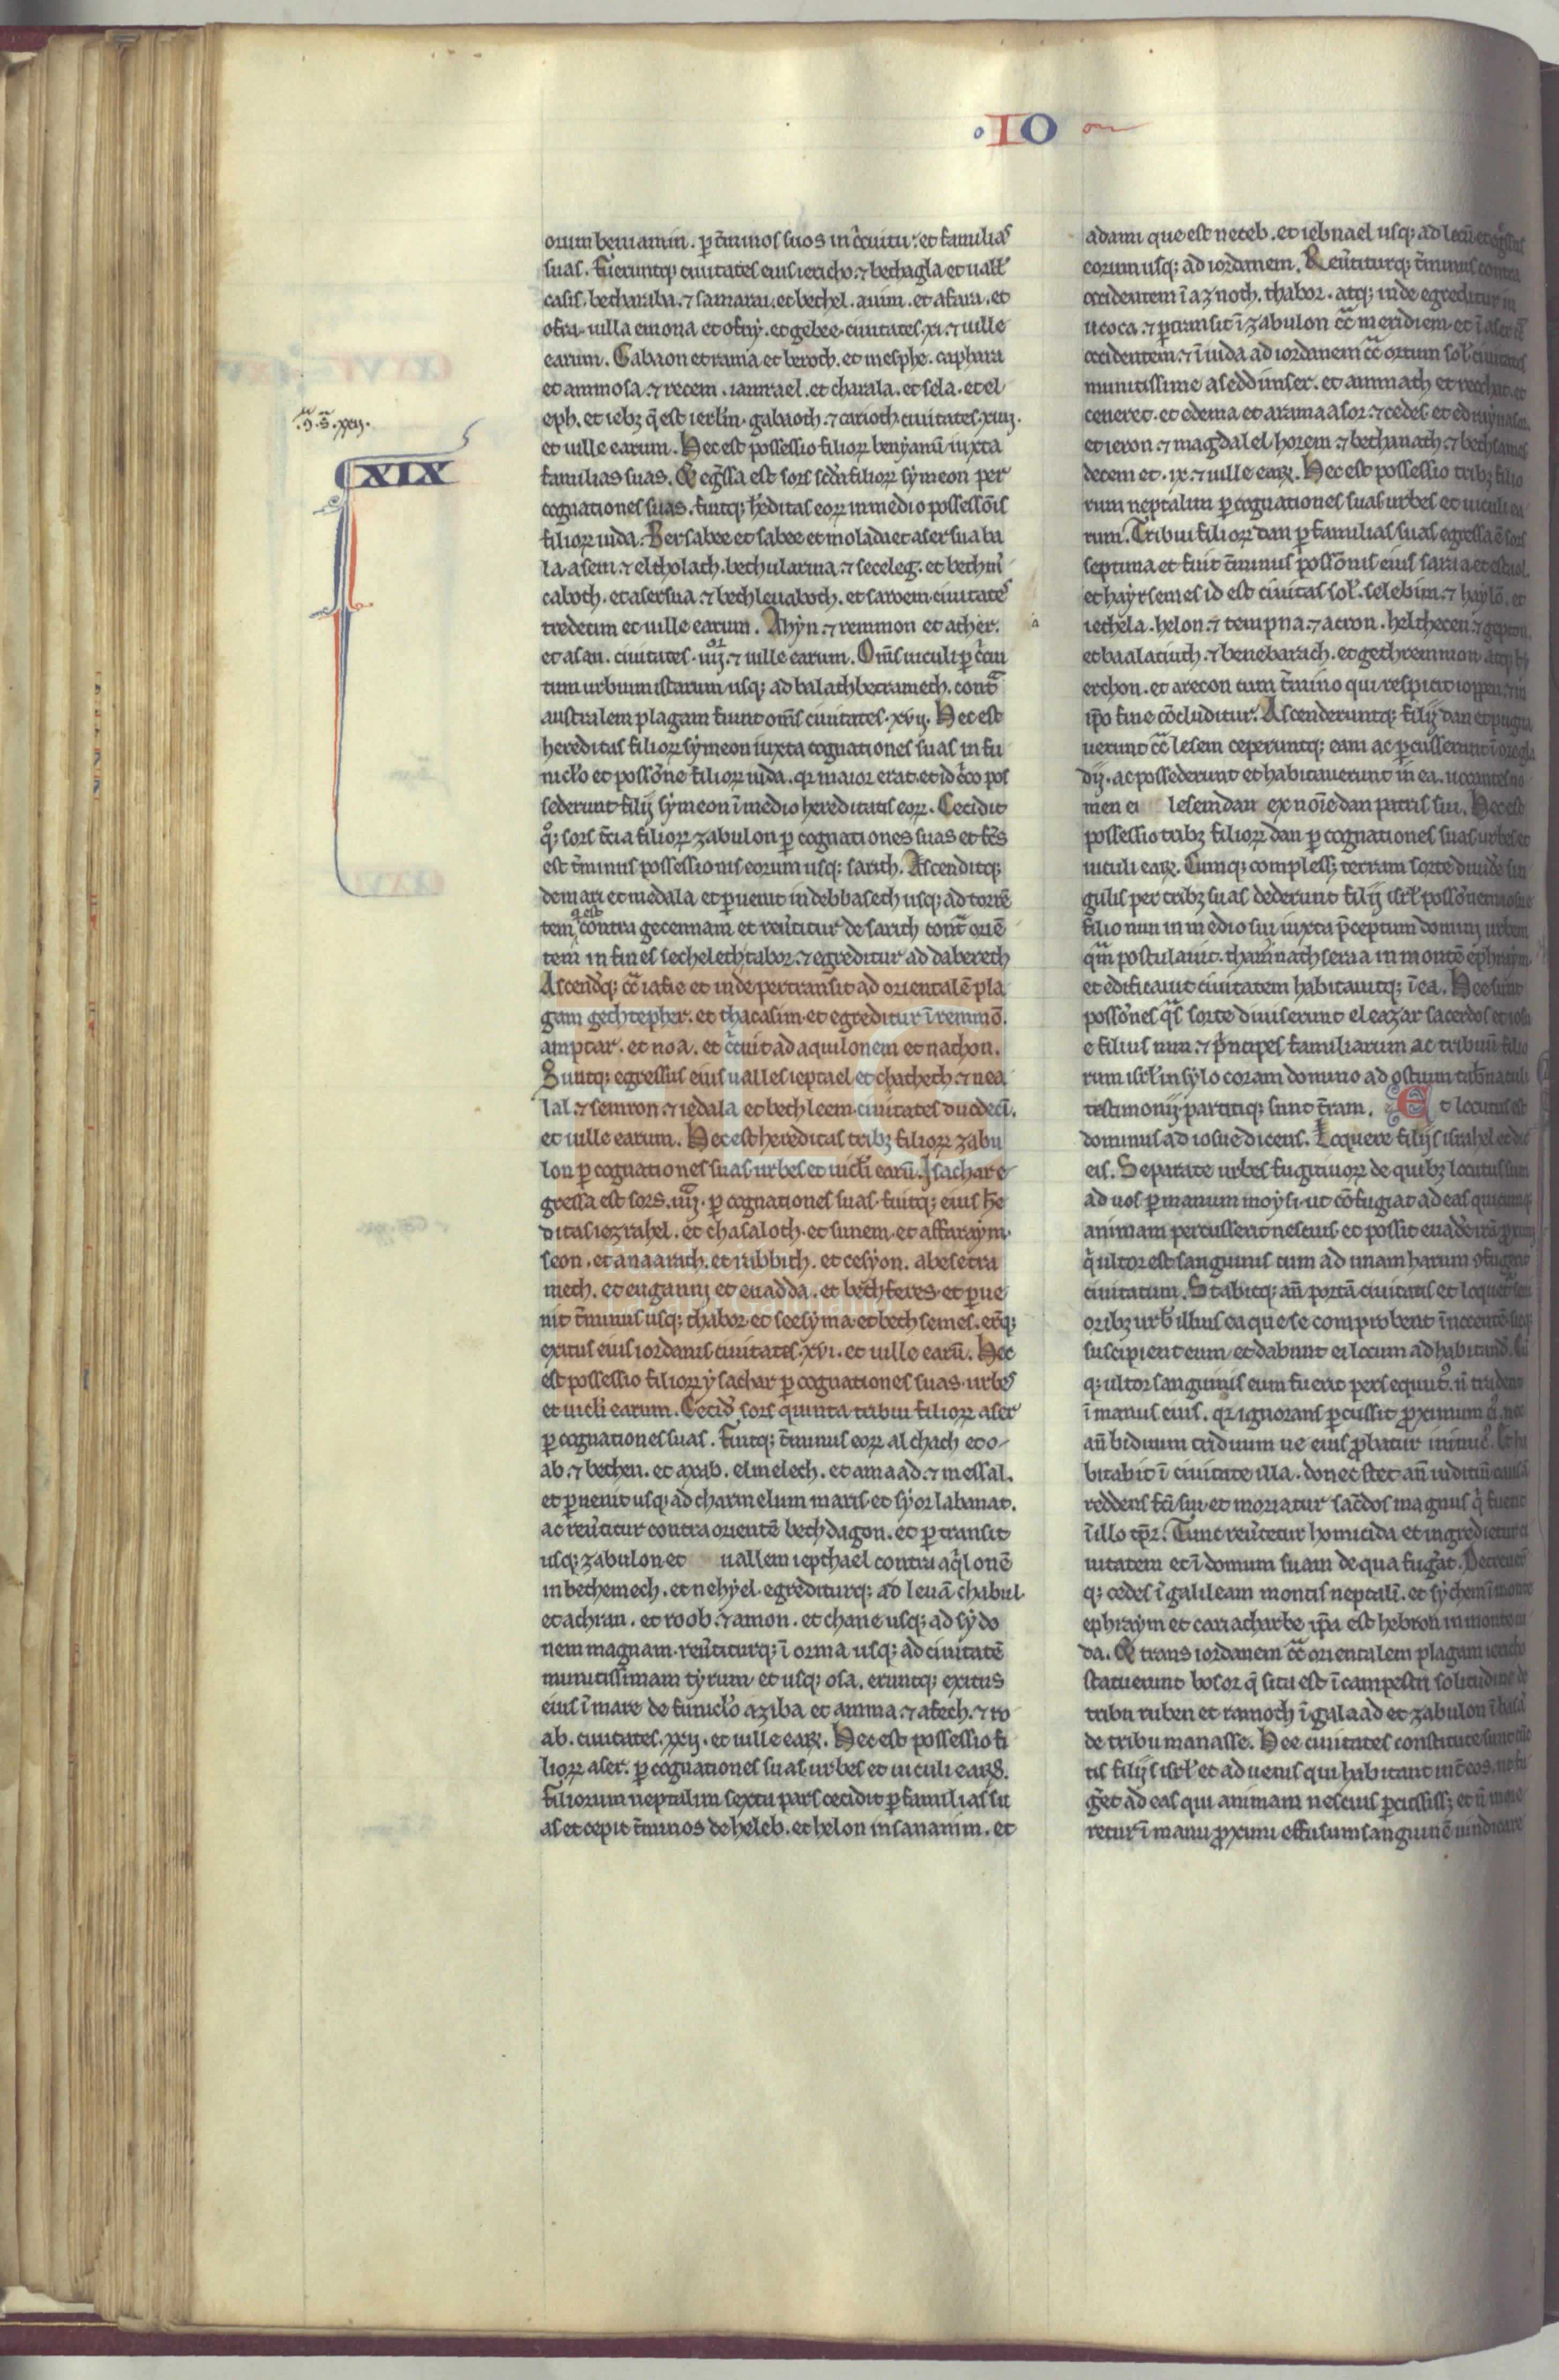 IO
orum beniamin. ꝑ t̄minos suos in c̓cuitu: et familias
suas. Fueruntq; ciuitates eius iericho. ⁊ bethagla et uałł
casis. betharaba. ⁊ samarai. et bethel. auim. et afara. et
ofra. uilla emona et ofny. et gebee. ciuitates. xı. ⁊ uille
earum. Gabaon et rama et beroth. et mesphe. caphara
et ammosa. ⁊ recem. iamrael. et tharala. et sela. et el
eph. et iebꝫ q̄ est ierłm. gabaoth. ⁊ carioth. ciuitates. xiiij.
.J. S̄. xxij.
et uille earum. Hec est possessio filioꝝ benyamī iuxta
XIX
familias suas. Et eg̃ssa est sors scḋa filioꝝ symeon per
cognationes suas. fuitq; h̓editas eoꝝ in medio possessōis
filioꝝ iuda. Bersabee et sabee et molada et asersua ba
la. asem. ⁊ eltholath. bethularma. ⁊ seceleg. et bethm̓
caboth. et asersua. ⁊ bethleuaboth. et saroem. ciuitates
tredecim et uille earum. Ahyn. ⁊ remmon et ather.
et asan. ciuitates. iiijor. ⁊ uille earum. Om̄s uiculi ꝑ c̓cui
tum urbium istarum usq; ad balath betramech. cont̃
australem plagam fiunt om̄s ciuitates. xvij. Hec est
hereditas filioꝝ symeon iuxta cognationes suas in fu
nicło et possōne filioꝝ iuda. qꝛ maior erat. et id c̓co pos
sederunt filij symeon ī medio hereditatis eoꝝ. Cecidit
q̊; sors t̄cia filioꝝ zabulon ꝑ cognationes suas et fc̄s
est t̄minus possessionis eorum usq; sarith. Ascenditq;
de mari et medala. et ꝑuenit in debbaseth usq; ad torrē
tem q̄ est contra gecennam et reūtitur de sarith cont̃ oriē
tem in fines sechelech tabor. ⁊ egreditur ad dabereth
Ascendq; c̃c̃ iafie et inde pertransit ad orientalē pla
gam gethtepher. et thacasim. et egreditur ī remmō.
amptar. et noa. et c̓cuit ad aquilonem et nathon.
Suntq; egressus eius ualles ieptael et chatheth. ⁊ nea
lal. ⁊ semron. ⁊ iedala et bethleem. ciuitates duodecī.
et uille earum. Hec est hereditas tribꝫ filioꝝ zabu
lon ꝑ cognationes suas urbes et uicłi earū. Isachar e
gressa est sors. iiija. ꝑ cognationes suas. fuitq; eius h̄e
ditas iezrahel. et chasaloth. et sunem. et affaraym.
seon. et anaarath. et rabbith. et cesyon. abesetra
mech. et engannj et enadda. et bethferes. et ꝑue
nit t̄minus usq; thabor et seesyma. et bethsemes. er̄q;
exitus eius iordanis. ciuitates. xvi. et uille earū. Hec
est possessio filioꝝ ysachar ꝑ cognationes suas. urbes
et uicłi earum. Cecid̓ sors quinta tribui filioꝝ aser
ꝑ cognationes suas. Fuitq; t̄minus eoꝝ alchach et o
ab. ⁊ bethen. et axab. elmelech. et amaad. ⁊ messal.
et ꝑuenit usq; ad charmelum maris. et syor labanat.
ac reūtitur contra orientē bethdagon. et ꝑtransit
usq; zabulon et uallem iepthael contra aq̓lonē
in bethemech. et nehyel. egrediturq; ad leuā chabul.
et achran. et roob. ⁊ amon. et chane usq; ad sydo
nem magnam. reūtiturq; ī orma usq; ad ciuitatē
munitissimam tyrum. et usq; osa. eruntq; exitus
eius ī mare de funicło aziba et amma. ⁊ afech. ⁊ ro
ab. ciuitates. xxij. et uille eaꝝ. Hec est possessio fi
lioꝝ aser. ꝑ cognationes suas urbes et uiculi eaꝝ.
Filiorum neptalim sexta pars cecidit ꝑ familias su
as et cepit t̄minos de heleb. et helon in sananim. et
adami que est neceb. et iebnael usq; ad lecū et eg̃ssus
eorum usq; ad iordanem. Reūtiturq; t̄minus contra
occidentem ī aznoth. thabor. atq; inde egreditur in
ucoca. ⁊ ꝑtransit ī zabulon c̃c̃ meridiem. et ī aser
occidentem. ⁊ ī iuda ad iordanem c̃c̃ ortum soł. ciuitates
munitissime aseddimser. et ammath et recchat. et
ceneret. et edema et arama asor. ⁊ cedes et edray nasor.
et ieron. ⁊ magdalel. horem. ⁊ bethanath. ⁊ bethsames
decem et. ıx. ⁊ uille eaꝝ. Hec est possessio tribꝫ filio
rum neptalim ꝑ cognationes suas urbes et uiculi ea
rum. Tribui filioꝝ dan ꝑ familias suas egressa ē sors
septima et fuit t̄minus possōnis eius saraa et estaol.
et hayrsemes id est ciuitas soł. selebim. ⁊ haylō. et
iethela. helon. ⁊ tempna. ⁊ acron. helthecen. ⁊ gepton.
et baalatiuth. ⁊ benebarach. et gethremmon.
erchon. et arecon cum t̄mino qui respicit ioppen.
ip̄o fine cōcluditur. Ascenderuntq; filij dan et pugna
uerunt c̃c̃ lesem ceperuntq; eam ac ꝑcusserunt ī ore gla
dij. ac possederunt et habitauerunt in ea. uocantes no
men ei lesemdan ex noīe dan patris sui. Hec est
possessio tribꝫ filioꝝ dan ꝑ cognationes suas urbes et
uiculi eaꝝ. Cumq; complessꝫ terram sorte diuid̓e sin
gulis per tribꝫ suas dederunt filij isrł possōnem iosue
filio nun in medio sui iuxta p̄ceptum domini urbem
qm̃ postulauit. thamnath seraa in monte ephraym.
et edificauit ciuitatem habitauitq; ī ea. Hee sunt
possōnes q̃s sorte diuiserunt eleazar sacerdos et iosu
e filius nun. ⁊ p̓ncipes familiarum ac tribuū filio
rum isrł in sylo coram domino ad ostium tab̓naculi
testimonij partitiq; sunt t̄ram. Et locutus est
dominus ad iosue dicens. Loquere filijs israhel et dic
eis. Separate urbes fugitiuoꝝ de quibꝫ locutus sum
ad uos ꝑ manum moysi. ut cōfugiat ad eas quicumq;
animam percusserit nescius. et possit euad̓e irā ꝓximi
q̓ ultor est sanguinis cum ad unam harum ꝯfugerit
ciuitatum. Stabitq; an̄ portā ciuitatis et loquet̓ seni
oribꝫ urb̓ illius ea que se comprobent īnocentē sicq;
suscipient eum. et dabunt ei locum ad habitand̓. Cū
q; ultor sanguinis eum fuerit persequut̓. n̄ tradent
ī manus eius. qꝛ ignorans ꝑcussit ꝓximum ei̓. nec
an̄ biduum triduum ue eius ꝓbatur inimic̓. Et ha
bitabit ī ciuitate illa. donec stet an̄ iuditiū causā
reddens fc̄i sui. et moriatur sac̄dos magnus q̓ fuerit
ī illo tp̄r. Tunc reūtetur homicida et ingredietur ci
uitatem et ī domum suam de qua fug̓at. Decreuer̄
q; cedes ī galileam montis neptalī. et sychem ī monte
ephraym et cariatharbe ip̄a est hebron in monte iu
da. Et trans iordanem c̃c̃ orientalem plagam iericho
statuerunt bosor q̄ sita est ī campestri solitudine de
tribu ruben et ramoth ī galaad et zabulon ī basā
de tribu manasse. Hee ciuitates constitute sunt cūc
tis filijs isrł et aduenis qui habitant int̄ eos. ut fu
g̓et ad eas qui animam nescius ꝑcussissꝫ et n̄ more
retur ī manu ꝓximi effusum sanguinē uindicare